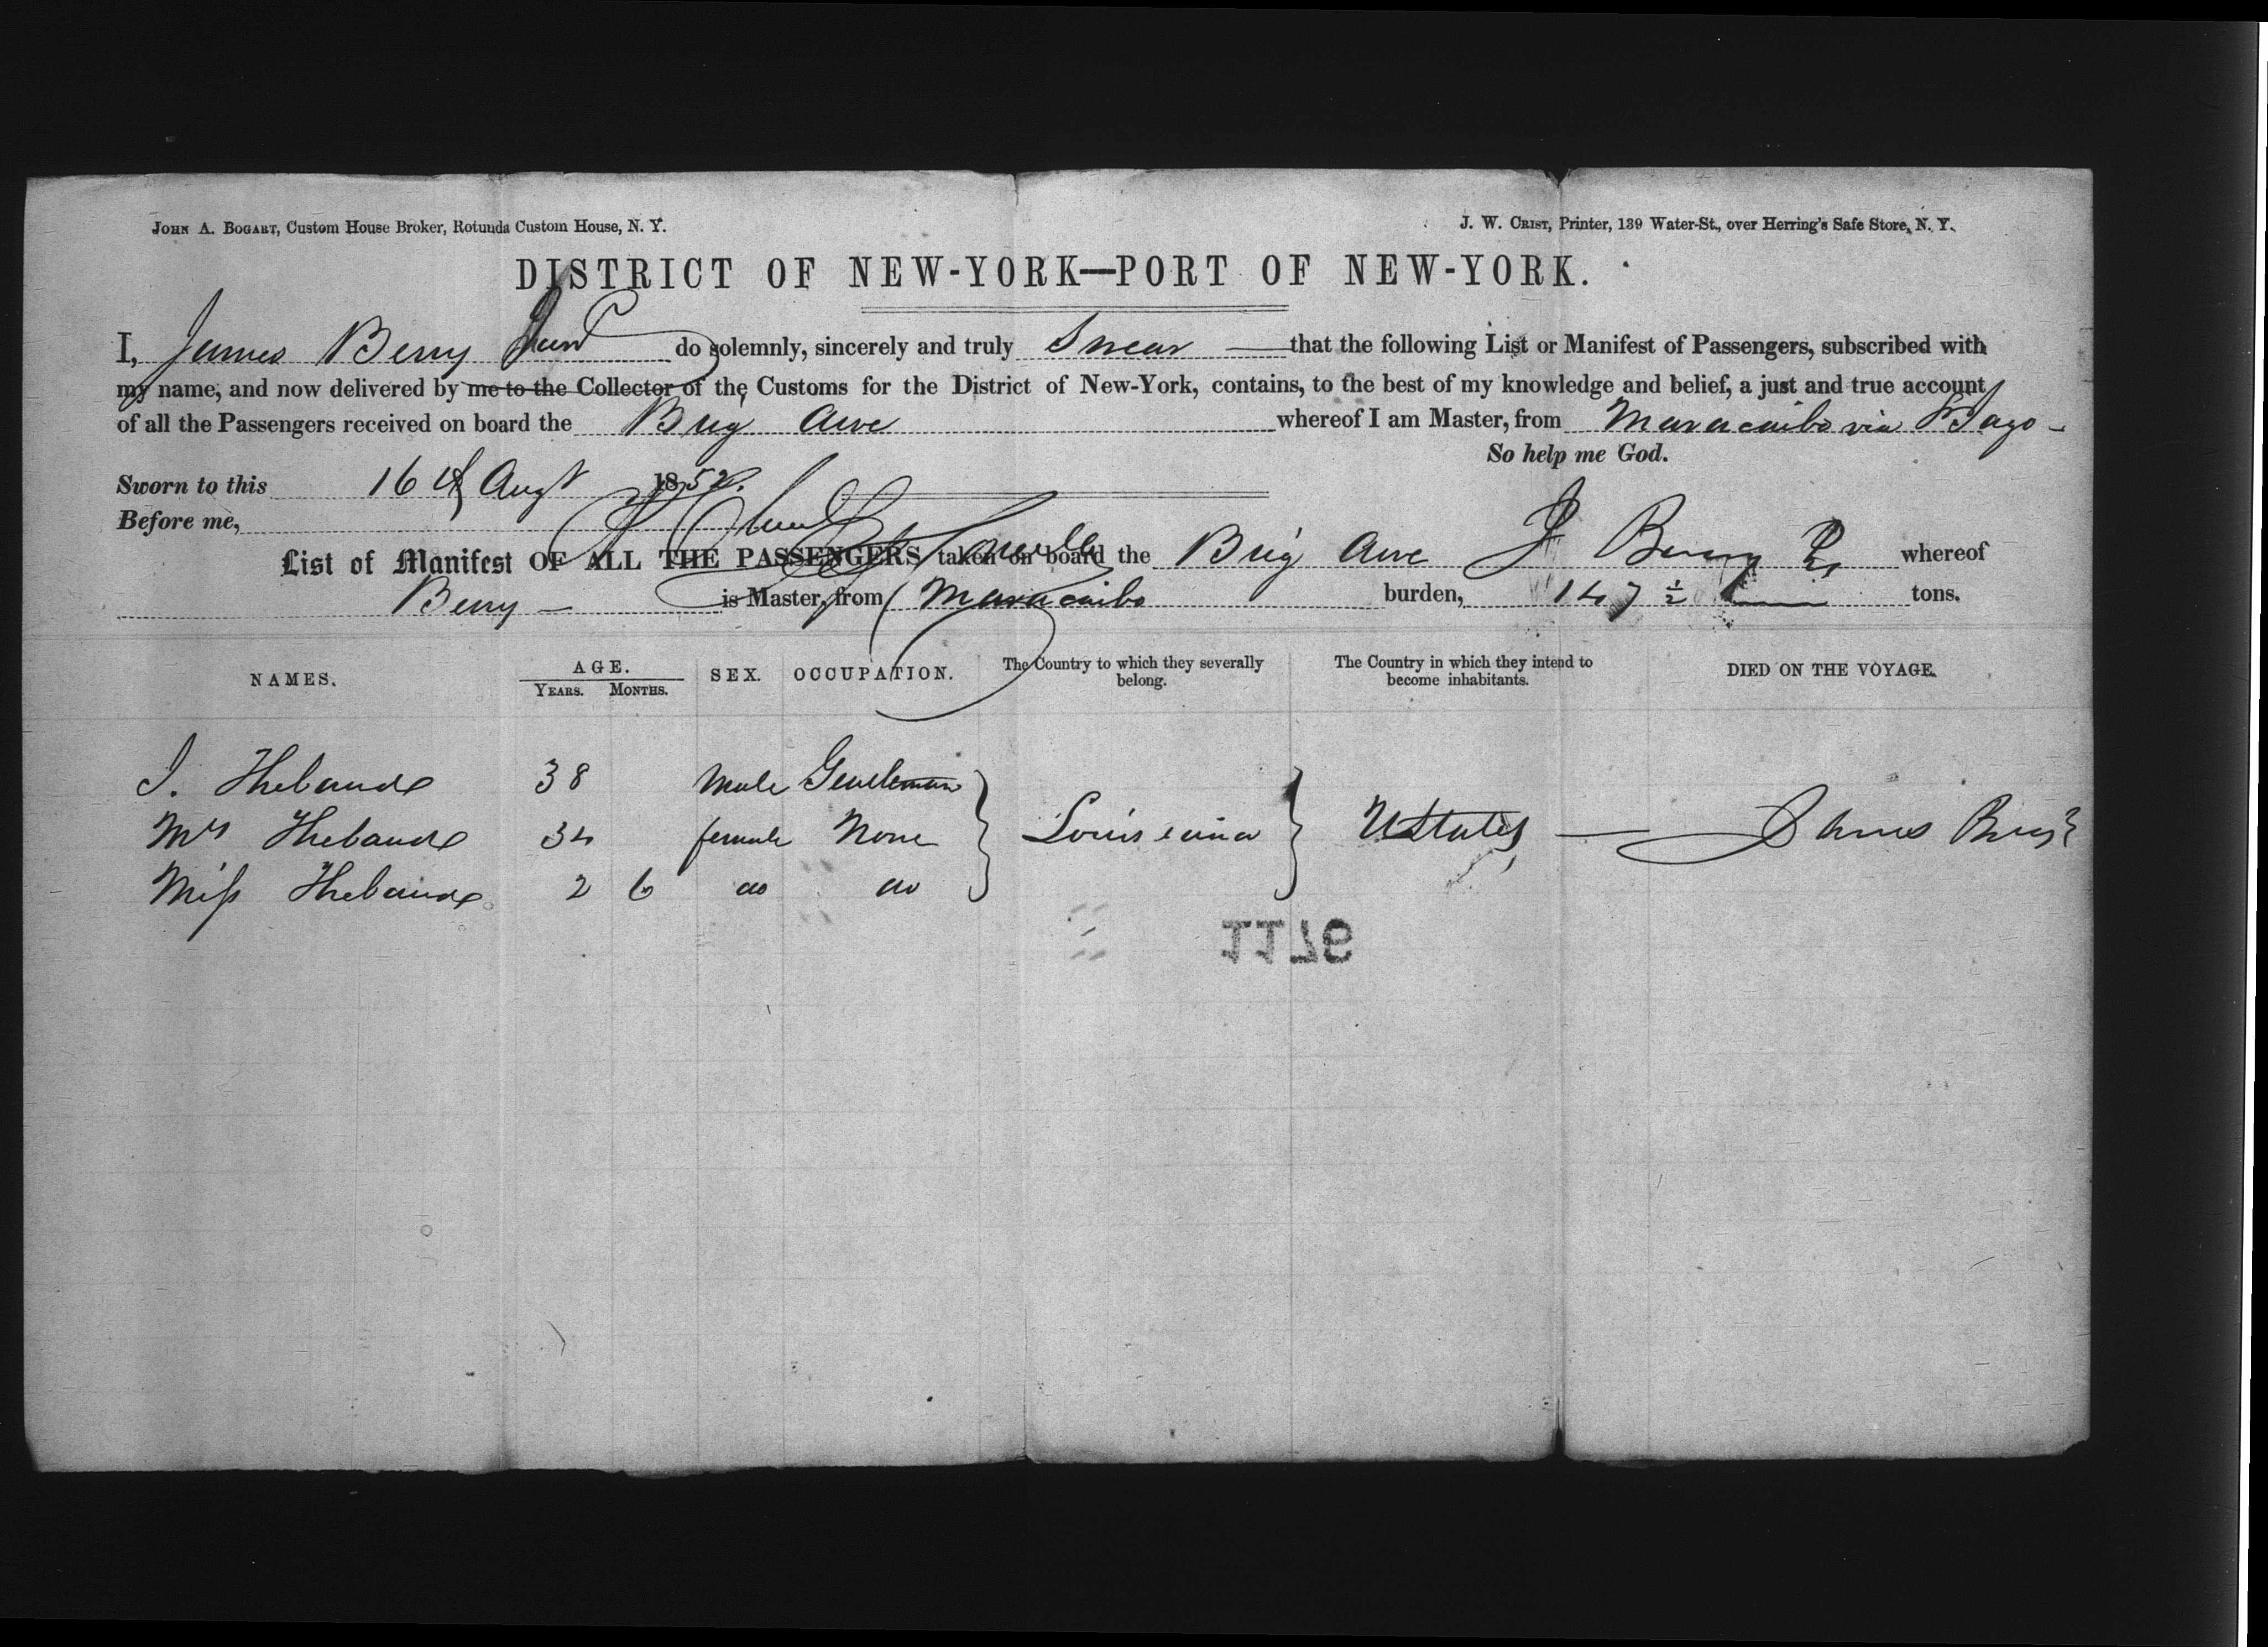 JOHN A. BOGART, Custom House Broker, Rotunda Custom House, N. Y.
J. W. CRIST, Printer, 139 Water-St., over Herring's Safe Store, N. Y.
DISTRICT OF NEW-YORK—PORT OF NEW-YORK.
I, James Berry Junr do solemnly, sincerely and truly Swear that the following List or Manifest of Passengers, subscribed with
my name, and now delivered by me to the Collector of the Customs for the District of New-York, contains, to the best of my knowledge and belief, a just and true account
of all the Passengers received on board the Brig whereof I am Master, from Maracaibo via
So help me God.
Sworn to this 16th Augt 1852.
Before me,
List of Manifest OF ALL THE PASSENGERS taken on board the Brig J Berry Jr whereof
Berry is Master, from Maracaibo burden, 147 ½ tons.
NAMES. AGE. SEX. OCCUPATION. The Country to which they severally belong. The Country in which they intend to become inhabitants. DIED ON THE VOYAGE.
YEARS. MONTHS.
J. Thebaud 38 Male Gentleman
Mrs Thebaud 34 female None Louisiana UStates James Berry
Miss Thebaud 2 6 do do
1176